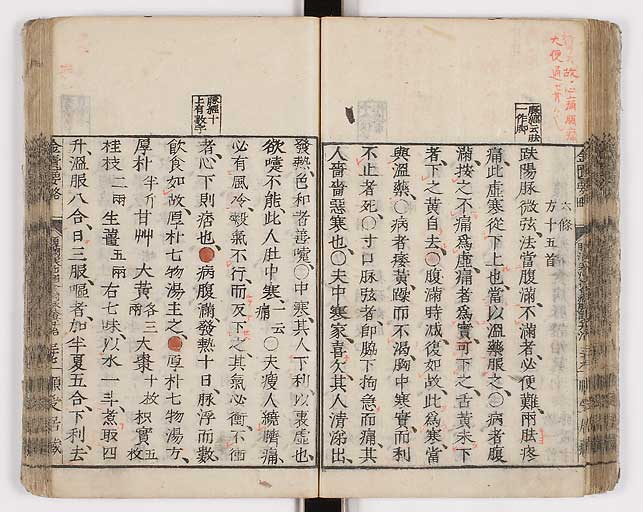 六條
方十五首
趺陽脉微弦法當腹滿不滿者必便難兩胠疼
痛此虛寒從下上也當以溫藥服之〇病者腹
滿按之不痛爲虛痛者爲實可下之舌黄未下
者下之黄自去〇腹滿時減復如故此爲寒當
與溫藥〇病者痿黄躁而不渴胸中寒實而利
不止者死〇寸口脉弦者即脇下拘急而痛其
人嗇嗇惡寒也〇夫中寒家喜欠其人清涕出
發熱色和者善嚏〇中寒其人下利以裏虛也
欲嚏不能此人肚中寒一云痛〇夫瘦人繞臍痛
必有風冷穀氣不行而反下之其氣必衝不衝
者心下則痞也
病腹滿發熱十日脉浮而數
飲食如故厚朴七物湯主之
厚朴七物湯方
厚朴半斤甘艸 大黄各三兩大棗十枚枳實五枚
桂枝二兩生薑五兩右七味以水一斗煮取四
升溫服八合日三服嘔者加半夏五合下利去
脉經云胠
一作脚
脉經十
上有數字
金匱要略
金匱要略